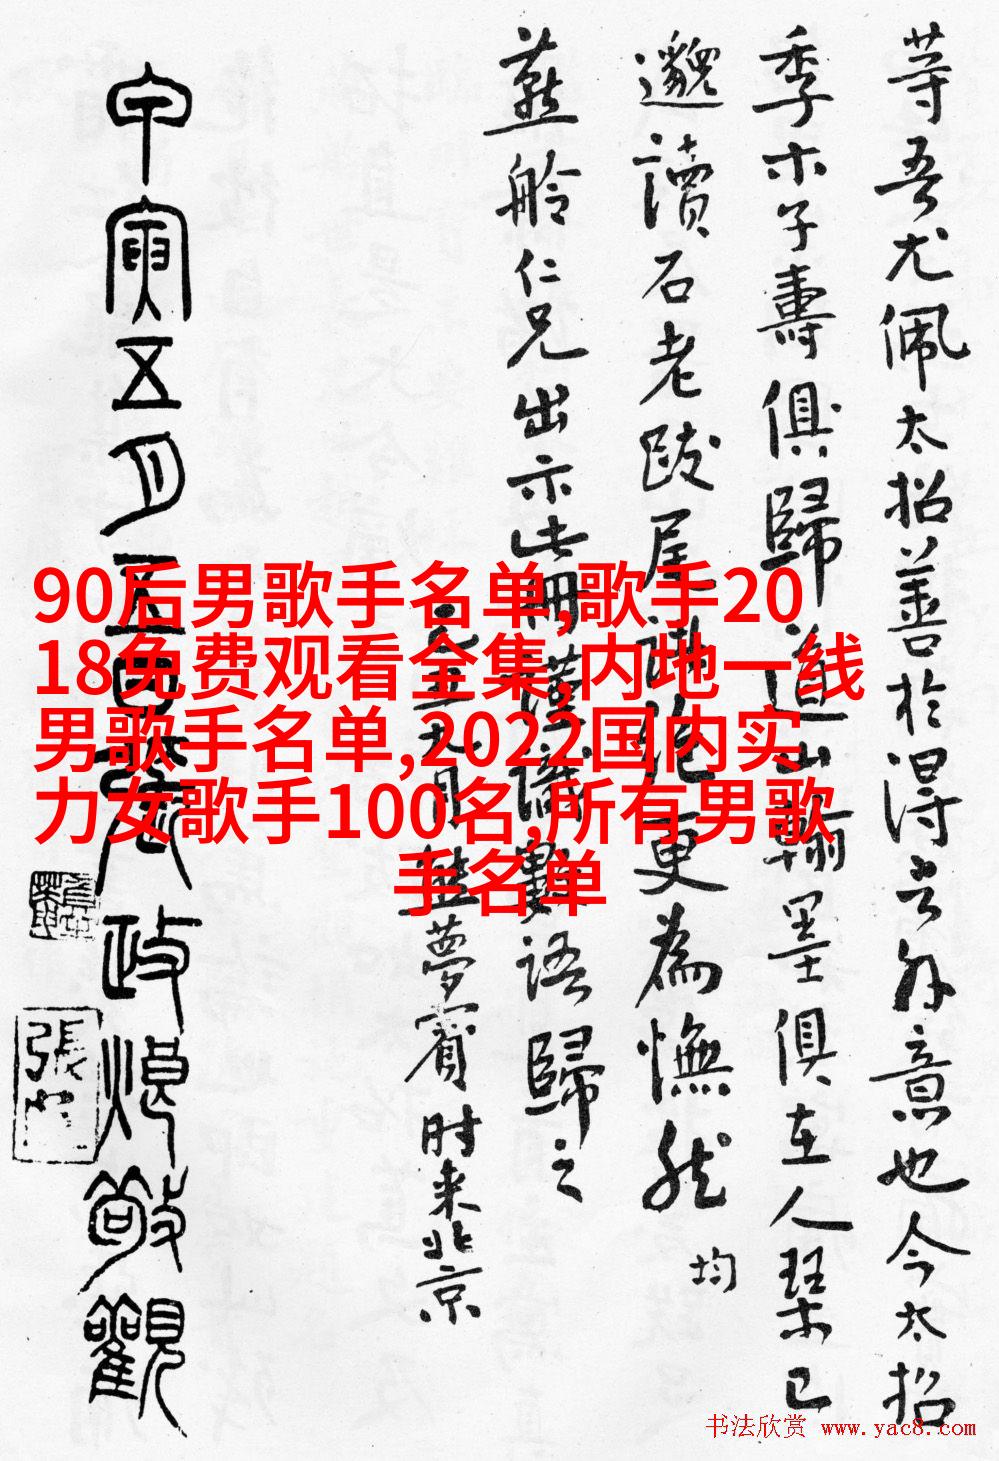 等吾尤佩太招善於得言外意也今太招
季木子壽俱歸道山翰墨俱在人琴已
邈讀石老跋尾諷挹更為憮然 均
燕舲仁兄出示此冊謹識數語歸之
夢賓时来北京
甲寅五月
政烺敬觀
張
90后男歌手名单,歌手20
18免费观看全集,内地一线
男歌手名单,2022国内实
力女歌手100名,所有男歌
手名单
书法欣赏 www.yac8.com